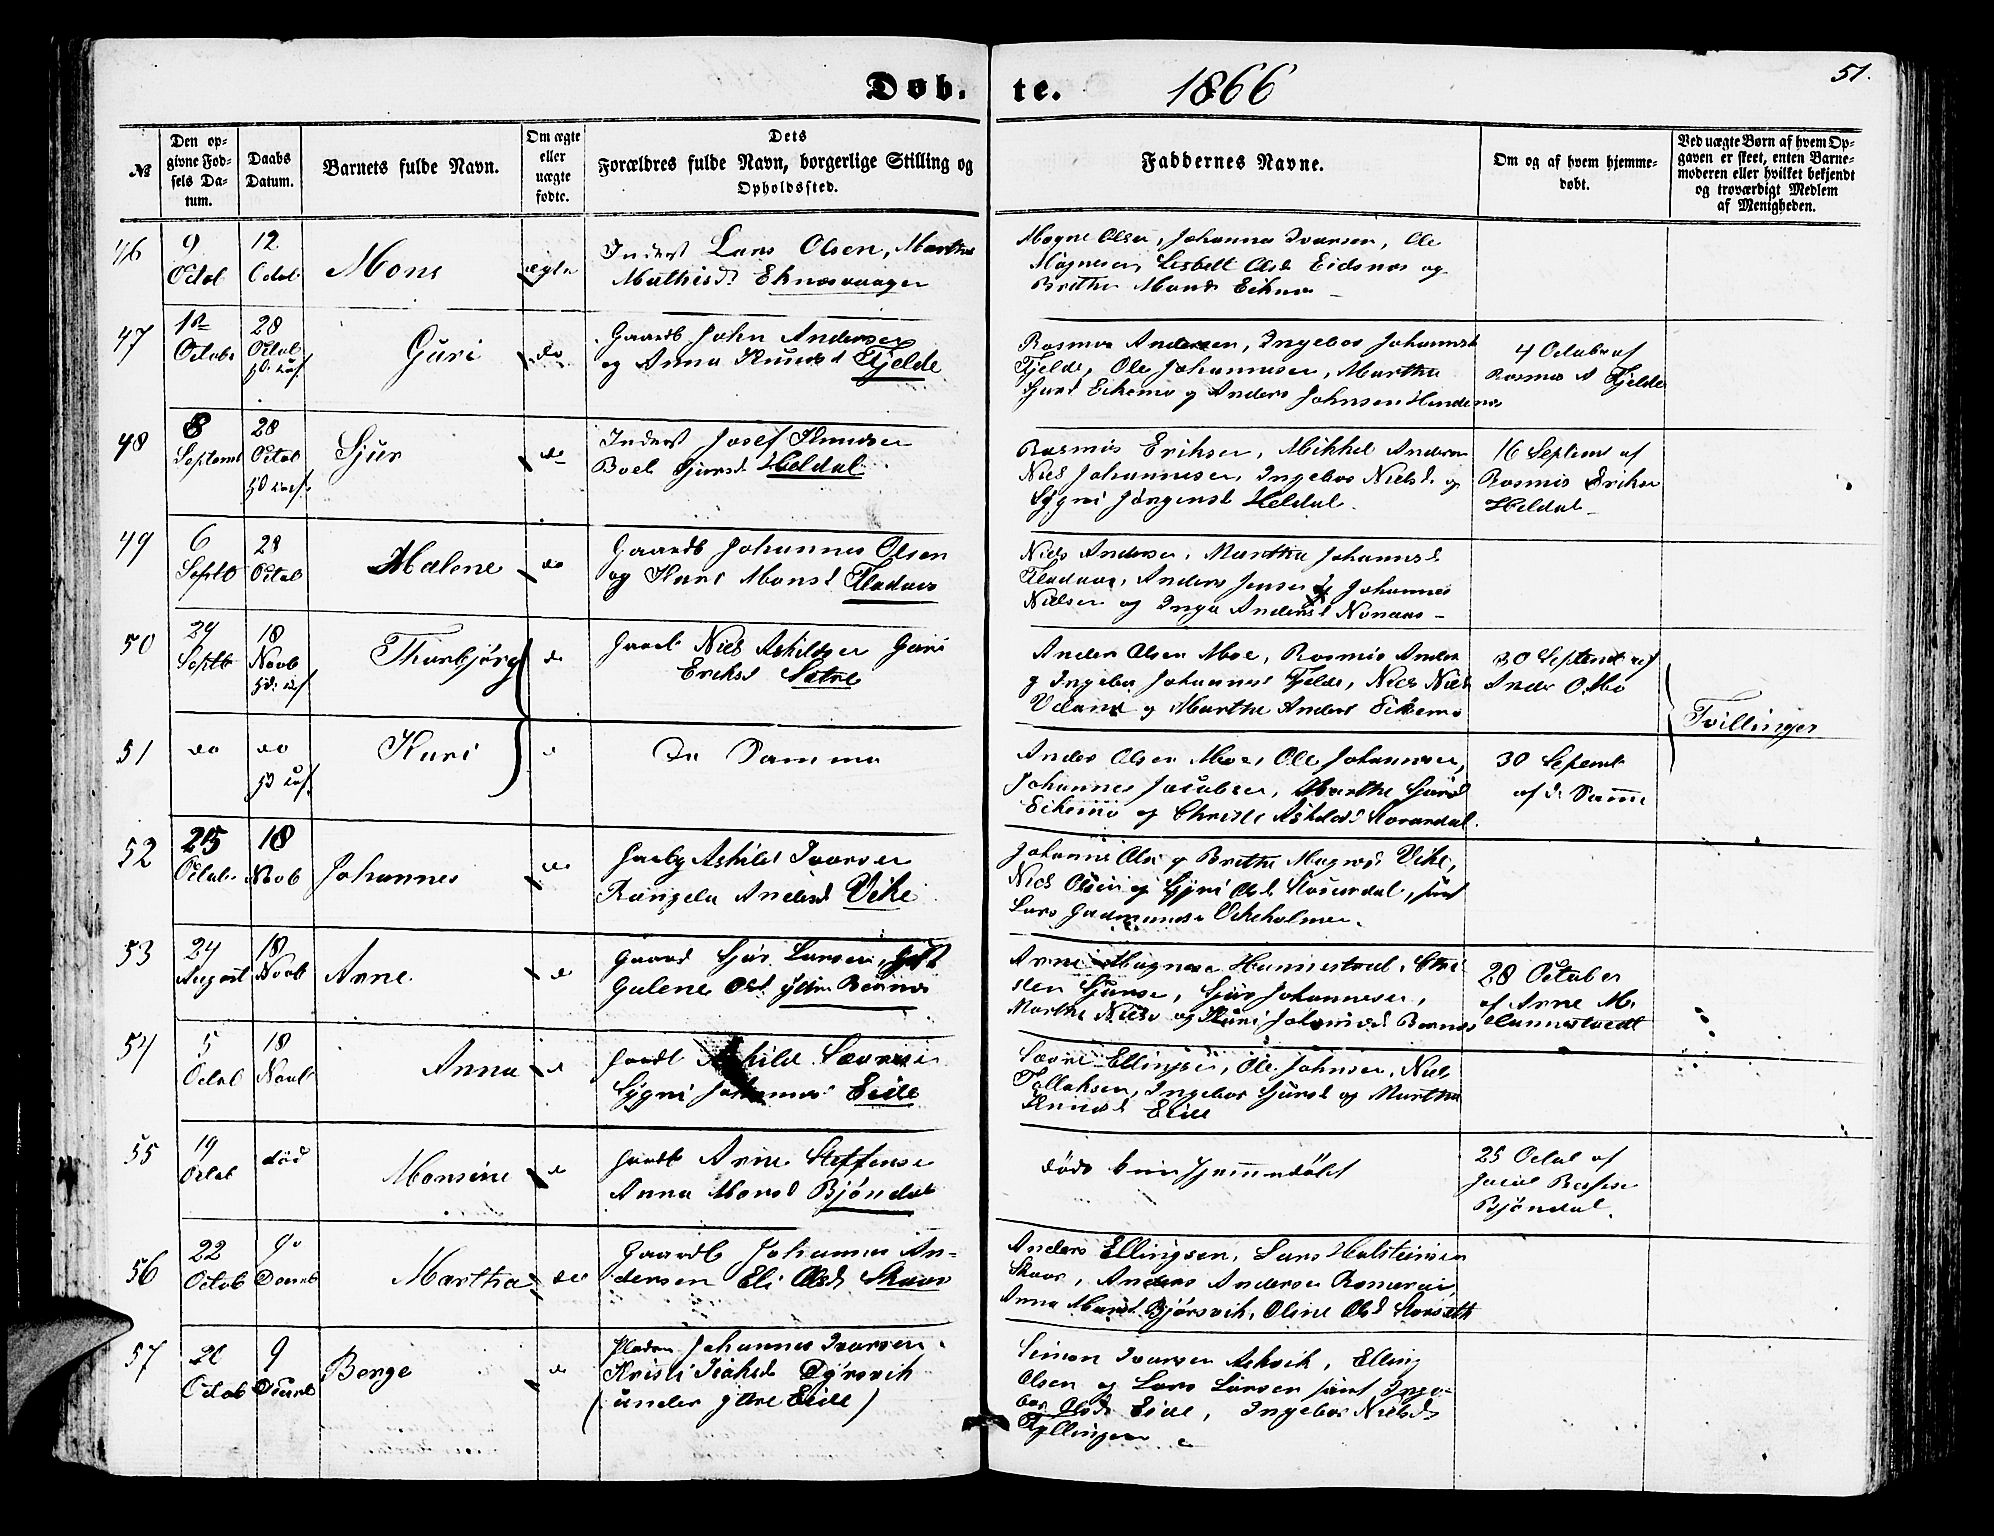 Døb.
te.
1866
51.
№
Den op-
givne Fød-
sels Da-
tum.
Daabs
Datum.
Barnets fulde Navn.
Om ægte
eller
uægte
fødte.
Dets
Forældres fulde Navn, borgerlige Stilling og
Opholdssted.
Faddernes Navne.
Om og af hvem hjemme-
døbt.
Ved uægte Børn af hvem Op-
gaven er skeet, enten Barne-
moderen eller hvilket bekjendt
og troværdigt Medlem
af Menigheden.
46
9
Octob
12
Octob
Mons
ægte
Inderst Lars Olsen, Martha
Mathisd Eknæsvaagen
Mogne Olsen, Johannes Ivarsen, Ole
Magnesen, Lisbett Olsd Eidsnes og
Brithe Monsd Eiknes
47
Octobr
28
Octob
Guri
do
Gaardb John Andersen
og Anna Knudsd Fjelde
Rasmus Andersen, Ingebor Johannsd
Fjelde, Ole Johannesen, Martha
Sjursd Eikemo og Anders Johnsen
4 Octobr af
Rasmus A Fjelde
48
8
Septemb
28
Octob
Sjur
do
Inderst Josef Knudsen
Boel Sjursd Heldal
Rasmus Eriksen, Mikkel Andersen
Niels Johannesen, Ingebor Nielsd og
Sygni Jørgensd Heldal
16 Septemb af
Rasmus Eriksen
Heldal
49
6
Septb
28
Octob
Malene
do
Gaardb Johannes Olsen
og Kari Monsd Fladaas
Niels Andersen, Martha Johannsd
Fladaas, Anders Jensen og Johannes
Nielsen og Inga Andersd Nonaas
50
29
Septb
18
Novb
Thorbjørg
do
Gaardb Niels Askildsen Guri
Eriksd Sætre
Anders Olsen Moe, Rasmus Anders
og Ingebor Johannesd Fjelde, Niels Niels
og Marthe Andersd Eikemo
30 Septemb af
Anders O Mo
Tvillinger
51
do
do
Kari
De Samme
Anders Olsen Moe, Ole Johannesen,
Johannes Jacobsen, Marthe Sjursd
Eikemo og Christi Askilds
30 Septemb
af d Samme
52
25
Octob
18
Novb
Johannes
do
Gaardb Askild Ivarsen
Rangela Andersd Vike
Johannes Olsen og Brithe Magnesd Vike,
Niels Olsen og Sygni Olsd, samt
Lars Gudmundsen Vikeholmen
53
24
August
18
Novb
Arne
do
Gaard Sjur Larsen
Gulene Olsd yttre Bernes
Arne Magnesen Hannestvedt
Sjursen, Sjur Johannesen,
Marthe Nielsd og Kari Bernes
28 October
af Arne M.
Hannestvedt
54
5
Octob
18
Novb
Anna
do
Gaardb Askild Sævresen
Sygni Johannesd Eide
Sævre Ellingsen, Ole Johnsen, Niels
Tollaksen, Ingebor Sjursd og Martha
Knudsd Eide
55
19
Octob
død
Monsine
do
Gaardb Arne Steffensen
Anna Monsd Bjøndal
døde kun hjemmedøbt
25 Octob af
Bjøndal
56
22
Octob
9
Decemb
Martha
do
Gaardb Johannes An-
dersen Eli Olsd Skaar
Anders Ellingsen, Lars Halsteinsen
Skaar, Anders Andersen
Anna Monsd Bjørsvik, Oline Olsd
57
Octob
9
Decemb
Berge
do
Johannes Ivarsen
Kristi Isaksd Dyrsvik
(under yttre Eide)
Simon Ivarsen Askvik, Elling
Olsen og Lars Larsen samt Inge-
bor Olsd Eide, Ingebor Nielsd